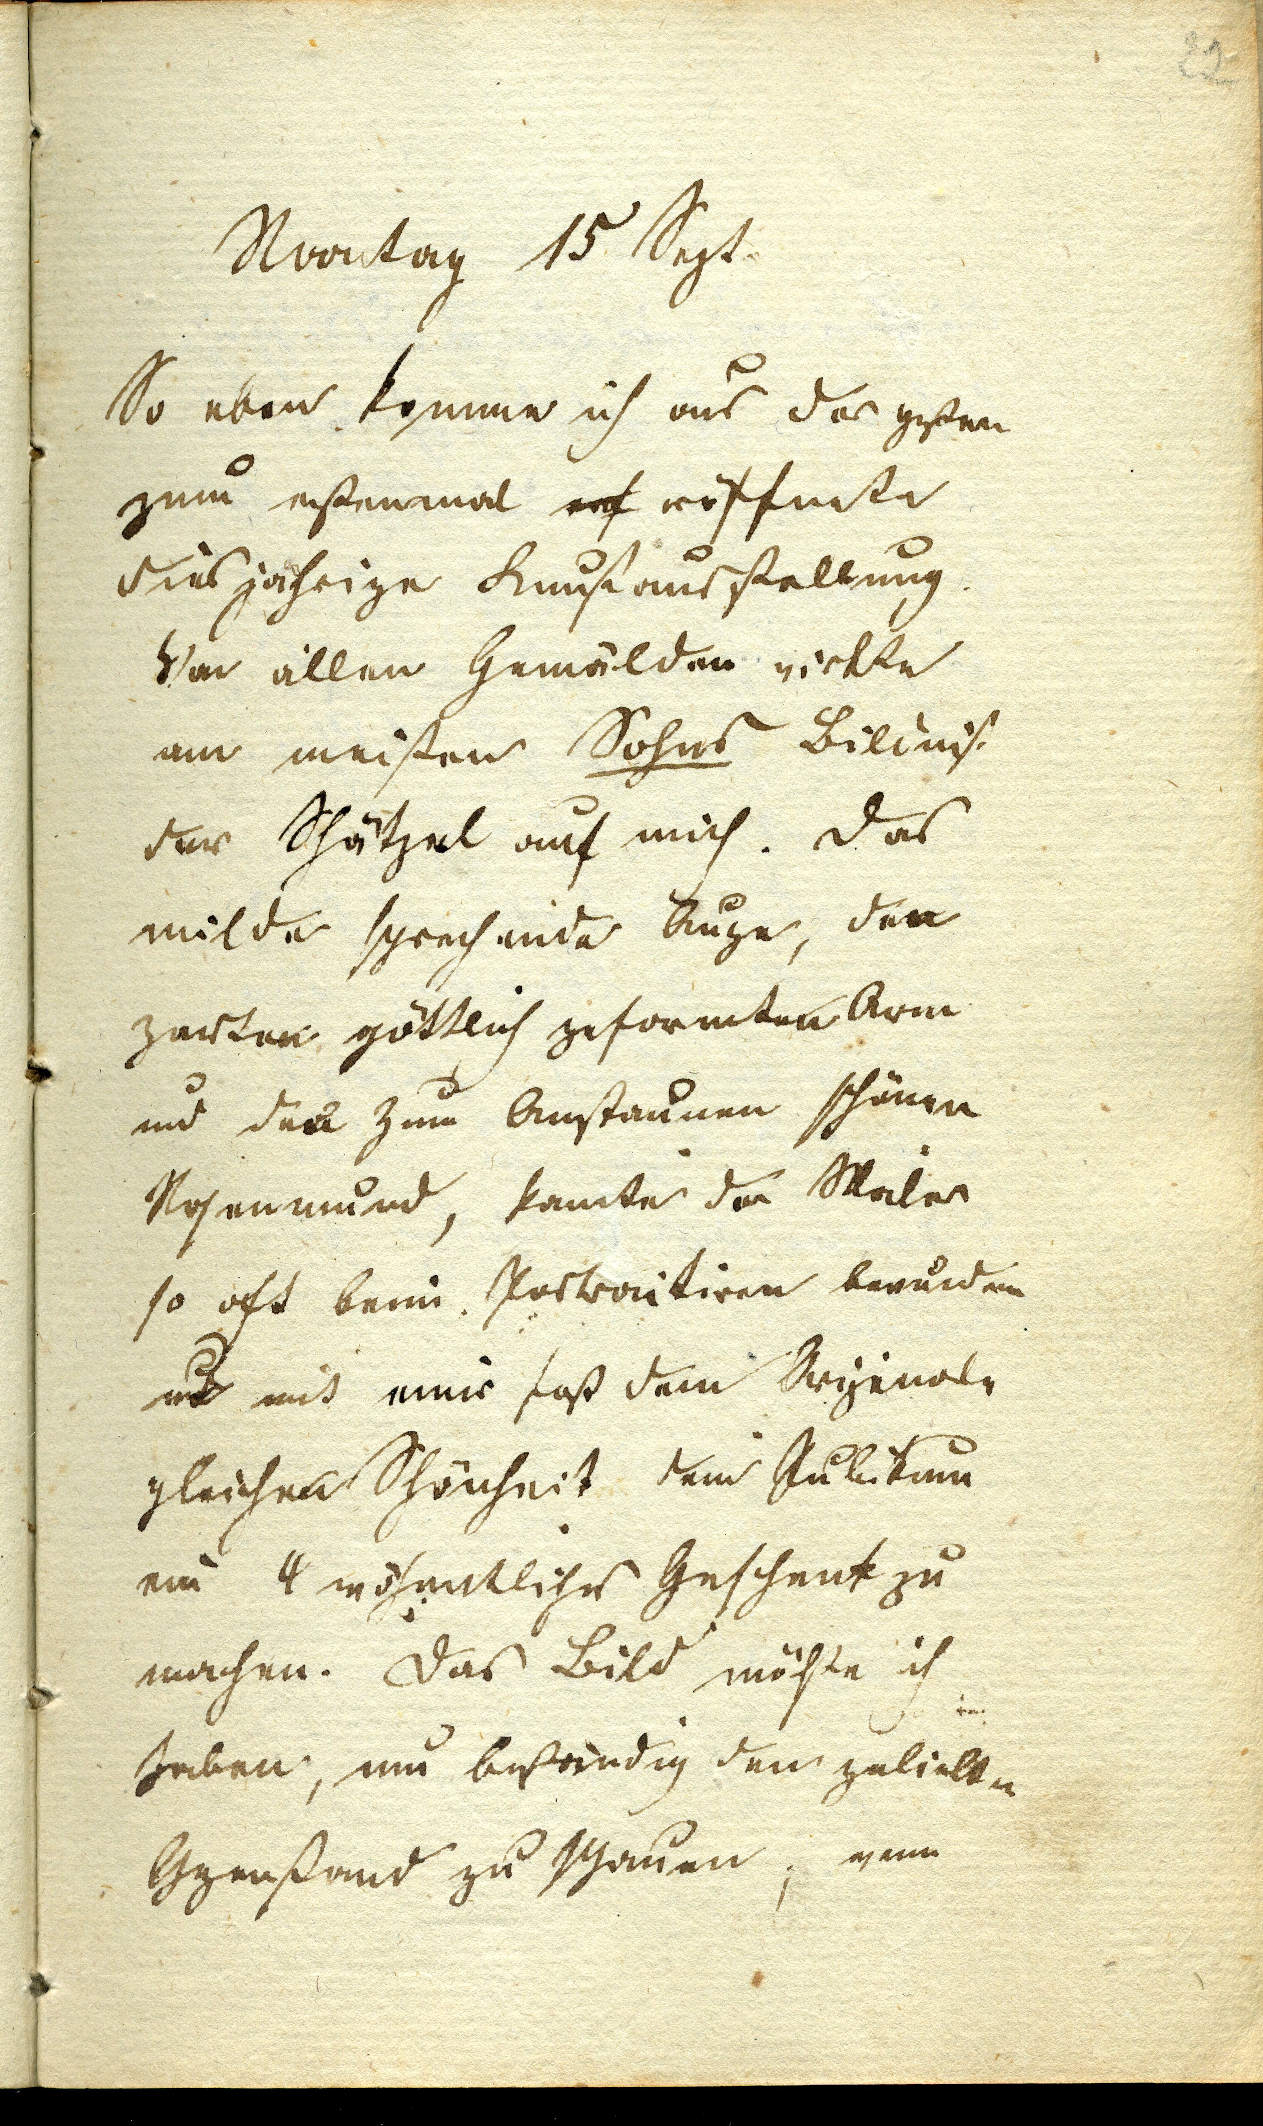 22
Montag 15 Sept.
So eben komme ich aus der gestern
zum erstenmal eröffnete
diesjährige Kunstausstellung.
Von allen Gemälden wirkte
am meisten Sohns Bildniß
der Schätzel auf mich. Das
milde sprechende Auge, den
zarten göttlich geformten Arm
und den zum Anstaunen schönen
Rosenmund, konnte der Maler
so oft beim Portraitiren bewundern
und mit einer fast dem Originale
gleichen Schönheit dem Publikum
ein 4 wöchentliches Geschenk zu
machen. Das Bild möchte ich
haben, um beständig den geliebten
Gegenstand zu schauen, wenn